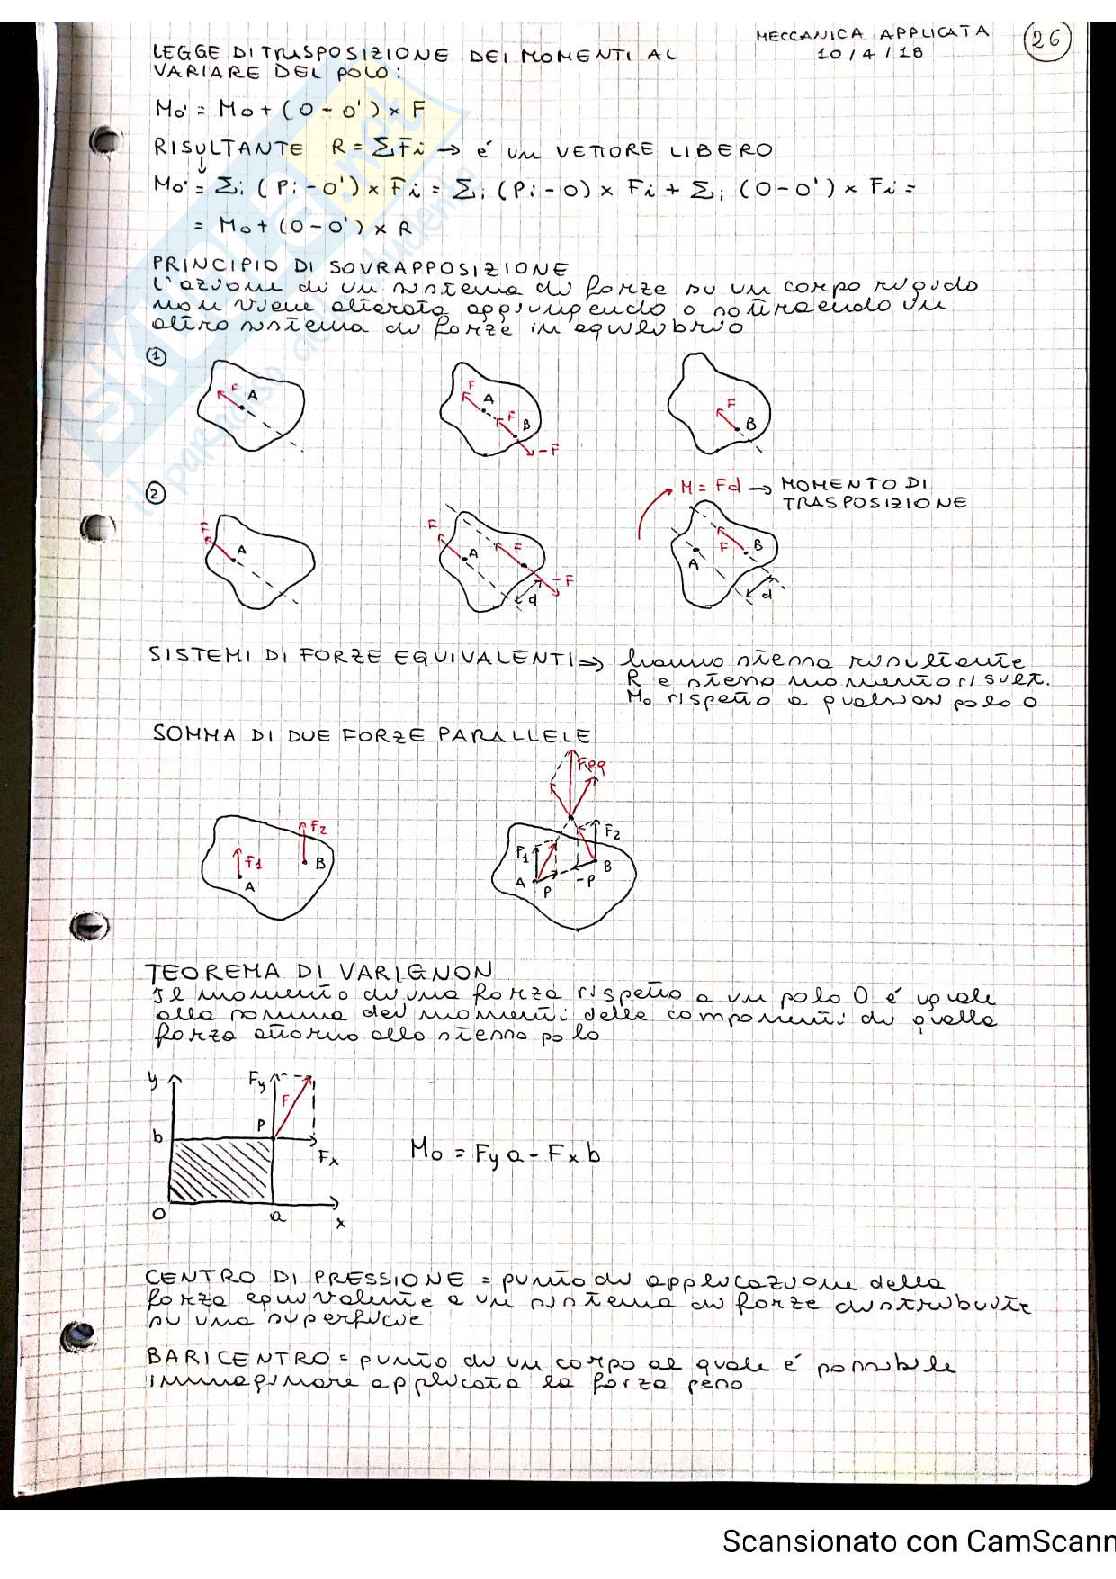 MECCANICA APPLICATA
10/4/18
26
LEGGE DI TRASPOSIZIONE DEI MOMENTI AL
VARIARE DEL POLO:
Mo' = Mo + (O - O') × F
RISULTANTE R = ΣFi → é un VETTORE LIBERO
Mo' = Σi (Pi - O') × Fi = Σi (Pi - O) × Fi + Σi (O - O') × Fi =
= Mo + (O - O') × R
PRINCIPIO DI SOVRAPPOSIZIONE
l'azione di un sistema di forze su un corpo rigido
non viene alterata aggiungendo o sottraendo un
altro sistema di forze in equilibrio
1
F A
F A F B -F
F B
2
M = Fd → MOMENTO DI
TRASPOSIZIONE
F A
F A F -F d
A F B d
SISTEMI DI FORZE EQUIVALENTI ⇒ hanno stessa risultante
R e stesso momento risult.
Mo rispetto a qualsiasi polo O
SOMMA DI DUE FORZE PARALLELE
Feq
F1 A F2 B
F1 A P -P B F2
TEOREMA DI VARIGNON
Il momento di una forza rispetto a un polo O é uguale
alla somma dei momenti delle componenti di quella
forza attorno allo stesso polo
y Fy F
b P Fx
Mo = Fy a - Fx b
O a x
CENTRO DI PRESSIONE = punto di applicazione della
forza equivalente a un sistema di forze distribuite
su una superficie
BARICENTRO = punto di un corpo al quale é possibile
immaginare applicata la forza peso
Scansionato con CamScann